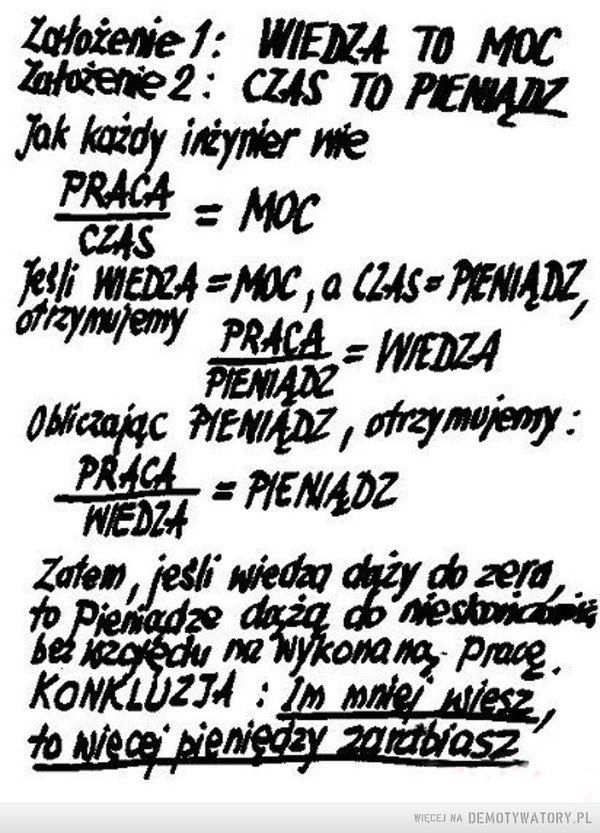 Założenie 1: WIEDZA TO MOC
Założenie 2: CZAS TO PIENIĄDZ
Jak każdy inżynier wie
PRACA
= MOC
CZAS
Jeśli WIEDZA = MOC, a CZAS = PIENIĄDZ,
otrzymujemy
PRACA
= WIEDZA
PIENIĄDZ
Obliczając PIENIĄDZ, otrzymujemy:
PRACA
= PIENIĄDZ
WIEDZA
Zatem, jeśli wiedza dąży do zera,
to Pieniądze dążą do nieskończoności
bez względu na wykonaną Pracę.
KONKLUZJA: Im mniej wiesz,
to więcej pieniędzy zarabiasz
WIĘCEJ NA DEMOTYWATORY.PL